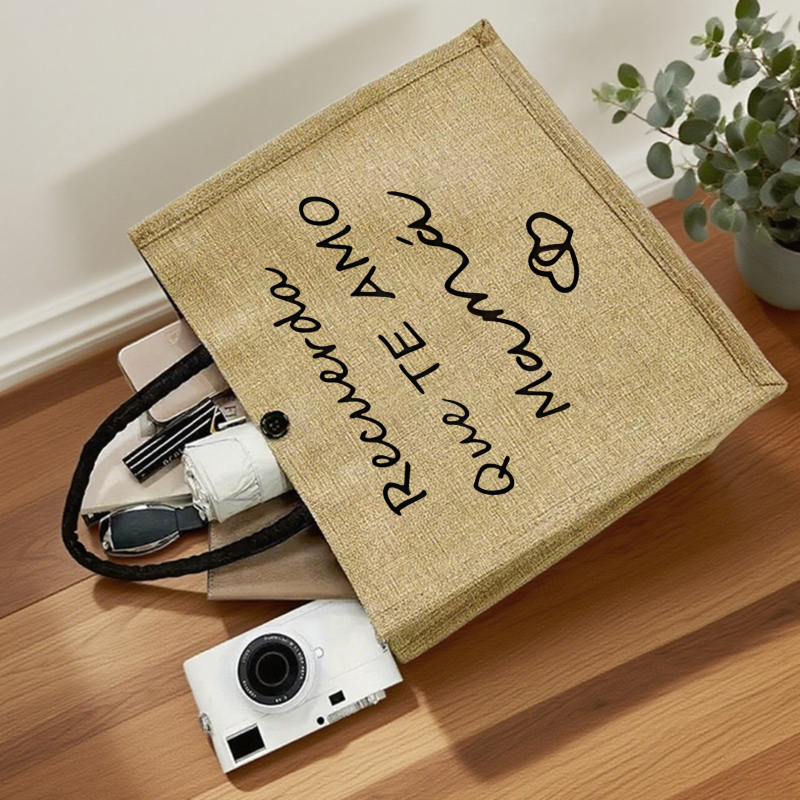 Recuerda
Que TE AMO
Mamá